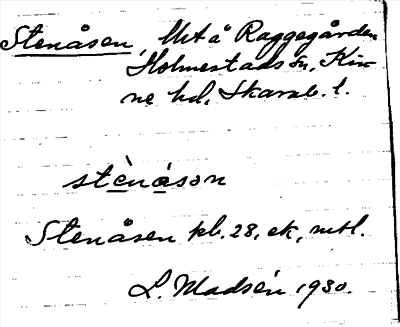 Stenåsen, Utå Raggegården
Holmestads sn, Kin-
ne hd, Skarab. l.
stènàsən
Stenåsen kb. 28, ek, mtl.
L. Madsén 1930.